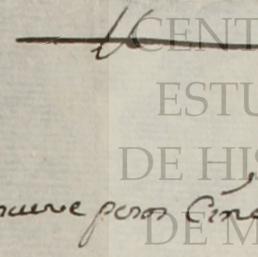 CENT
ESTU
DE HIS
nueve pesos Cin
DE M